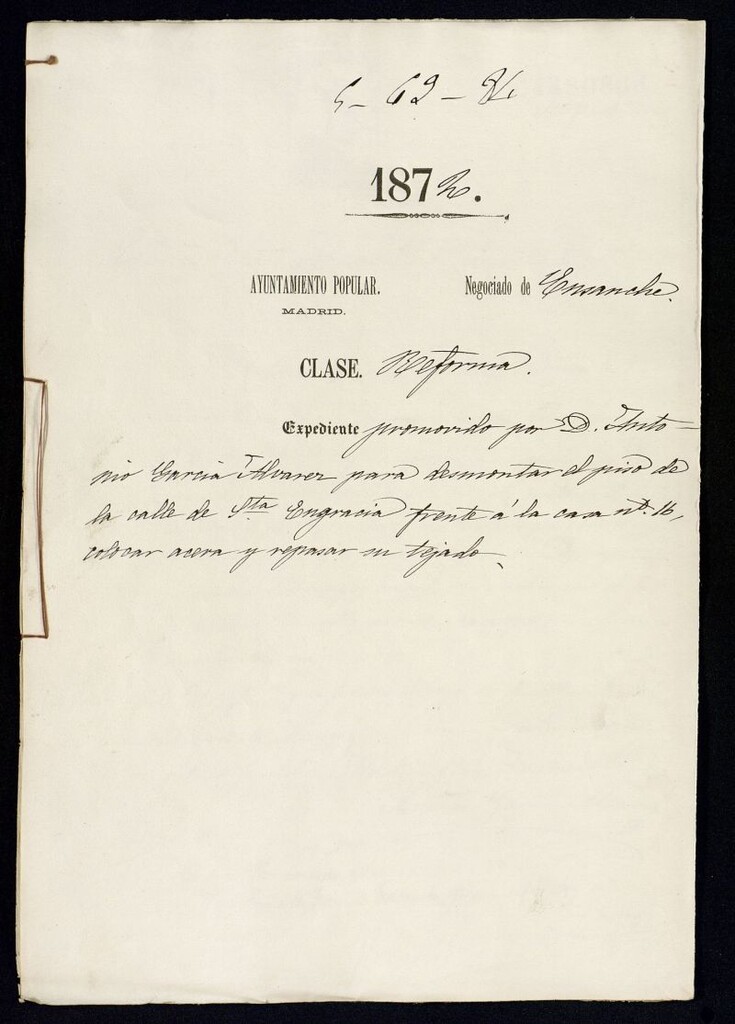 1872.
AYUNTAMIENTO POPULAR. Negociado de Ensanche.
MADRID.
CLASE. Reforma.
Expediente promovido por D. Anto-
nio Garcia Alvarez para desmontar el piso de
la calle de Sta Engracia frente á la casa nº. 16,
colocar acera y repasar su tejado.